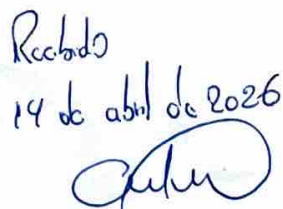 Recibido
14 de abril de 2026